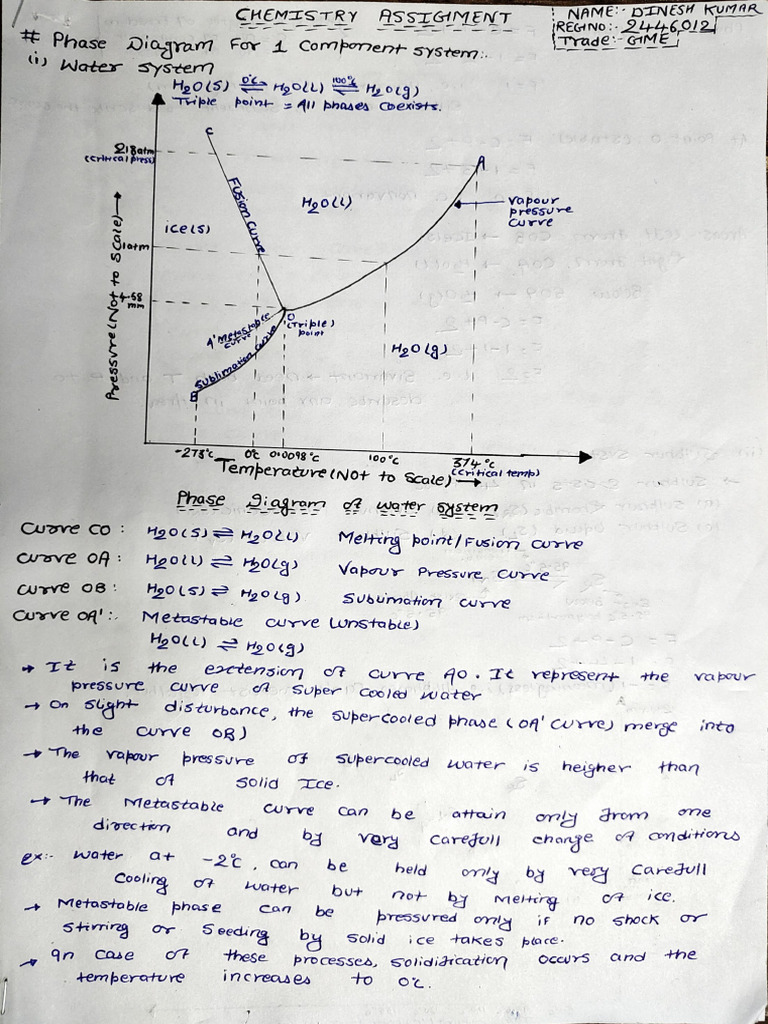 CHEMISTRY ASSIGMENT
NAME:- DINESH KUMAR
REGINO:- 2446012
Trade:- GIME
# Phase Diagram For 1 Component system:-
(i) Water system
H2O(s) ⇌ H2O(l) ⇌ H2O(g)
0°c 100°c
Triple point = All phases coexists.
C
218atm
(critical press)
A
Fusion curve
H2O(l)
vapour
pressure
curve
ice(s)
1atm
4.58
mm
O
(Triple)
point
A' Metastable
curve
Sublimation curve
H2O(g)
B
Pressure (Not to scale) →
-273°c 0°c 0.0098°c 100°c 374°c
(critical temp)
Temperature (Not to scale) →
Phase Diagram of water system
Curve CO : H2O(s) ⇌ H2O(l) Melting point/Fusion curve
Curve OA : H2O(l) ⇌ H2O(g) Vapour Pressure curve
Curve OB : H2O(s) ⇌ H2O(g) Sublimation curve
Curve OA':. Metastable curve (unstable)
H2O(l) ⇌ H2O(g)
→ It is the extension of curve AO. It represent the vapour
pressure curve of super cooled water
→ On slight disturbance, the supercooled phase (OA' curve) merge into
the curve OB)
→ The vapour pressure of supercooled water is heigher than
that of solid Ice.
→ The Metastable curve can be attain only from one
direction and by very carefull change of conditions
ex:- Water at -2°c, can be held only by very carefull
cooling of water but not by melting of ice.
→ Metastable phase can be pressured only if no shock or
stirring or seeding by solid ice takes place.
→ In case of these processes, solidification occurs and the
temperature increases to 0°c.